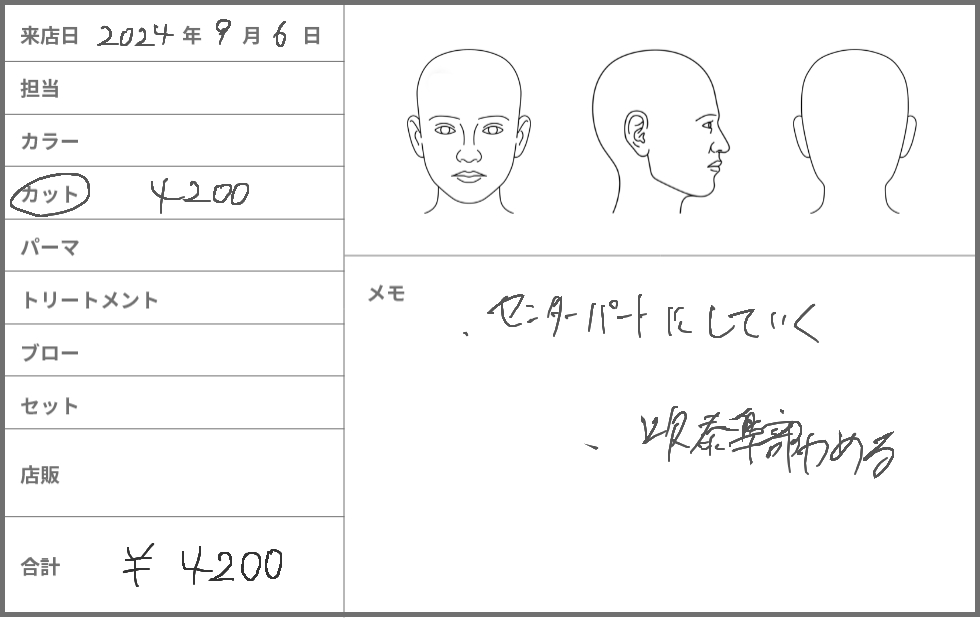 来店日 2024年9月6日
担当
カラー
カット 4200
パーマ
トリートメント
ブロー
セット
店販
合計 ¥4200
メモ
、センターパートにしていく
、める